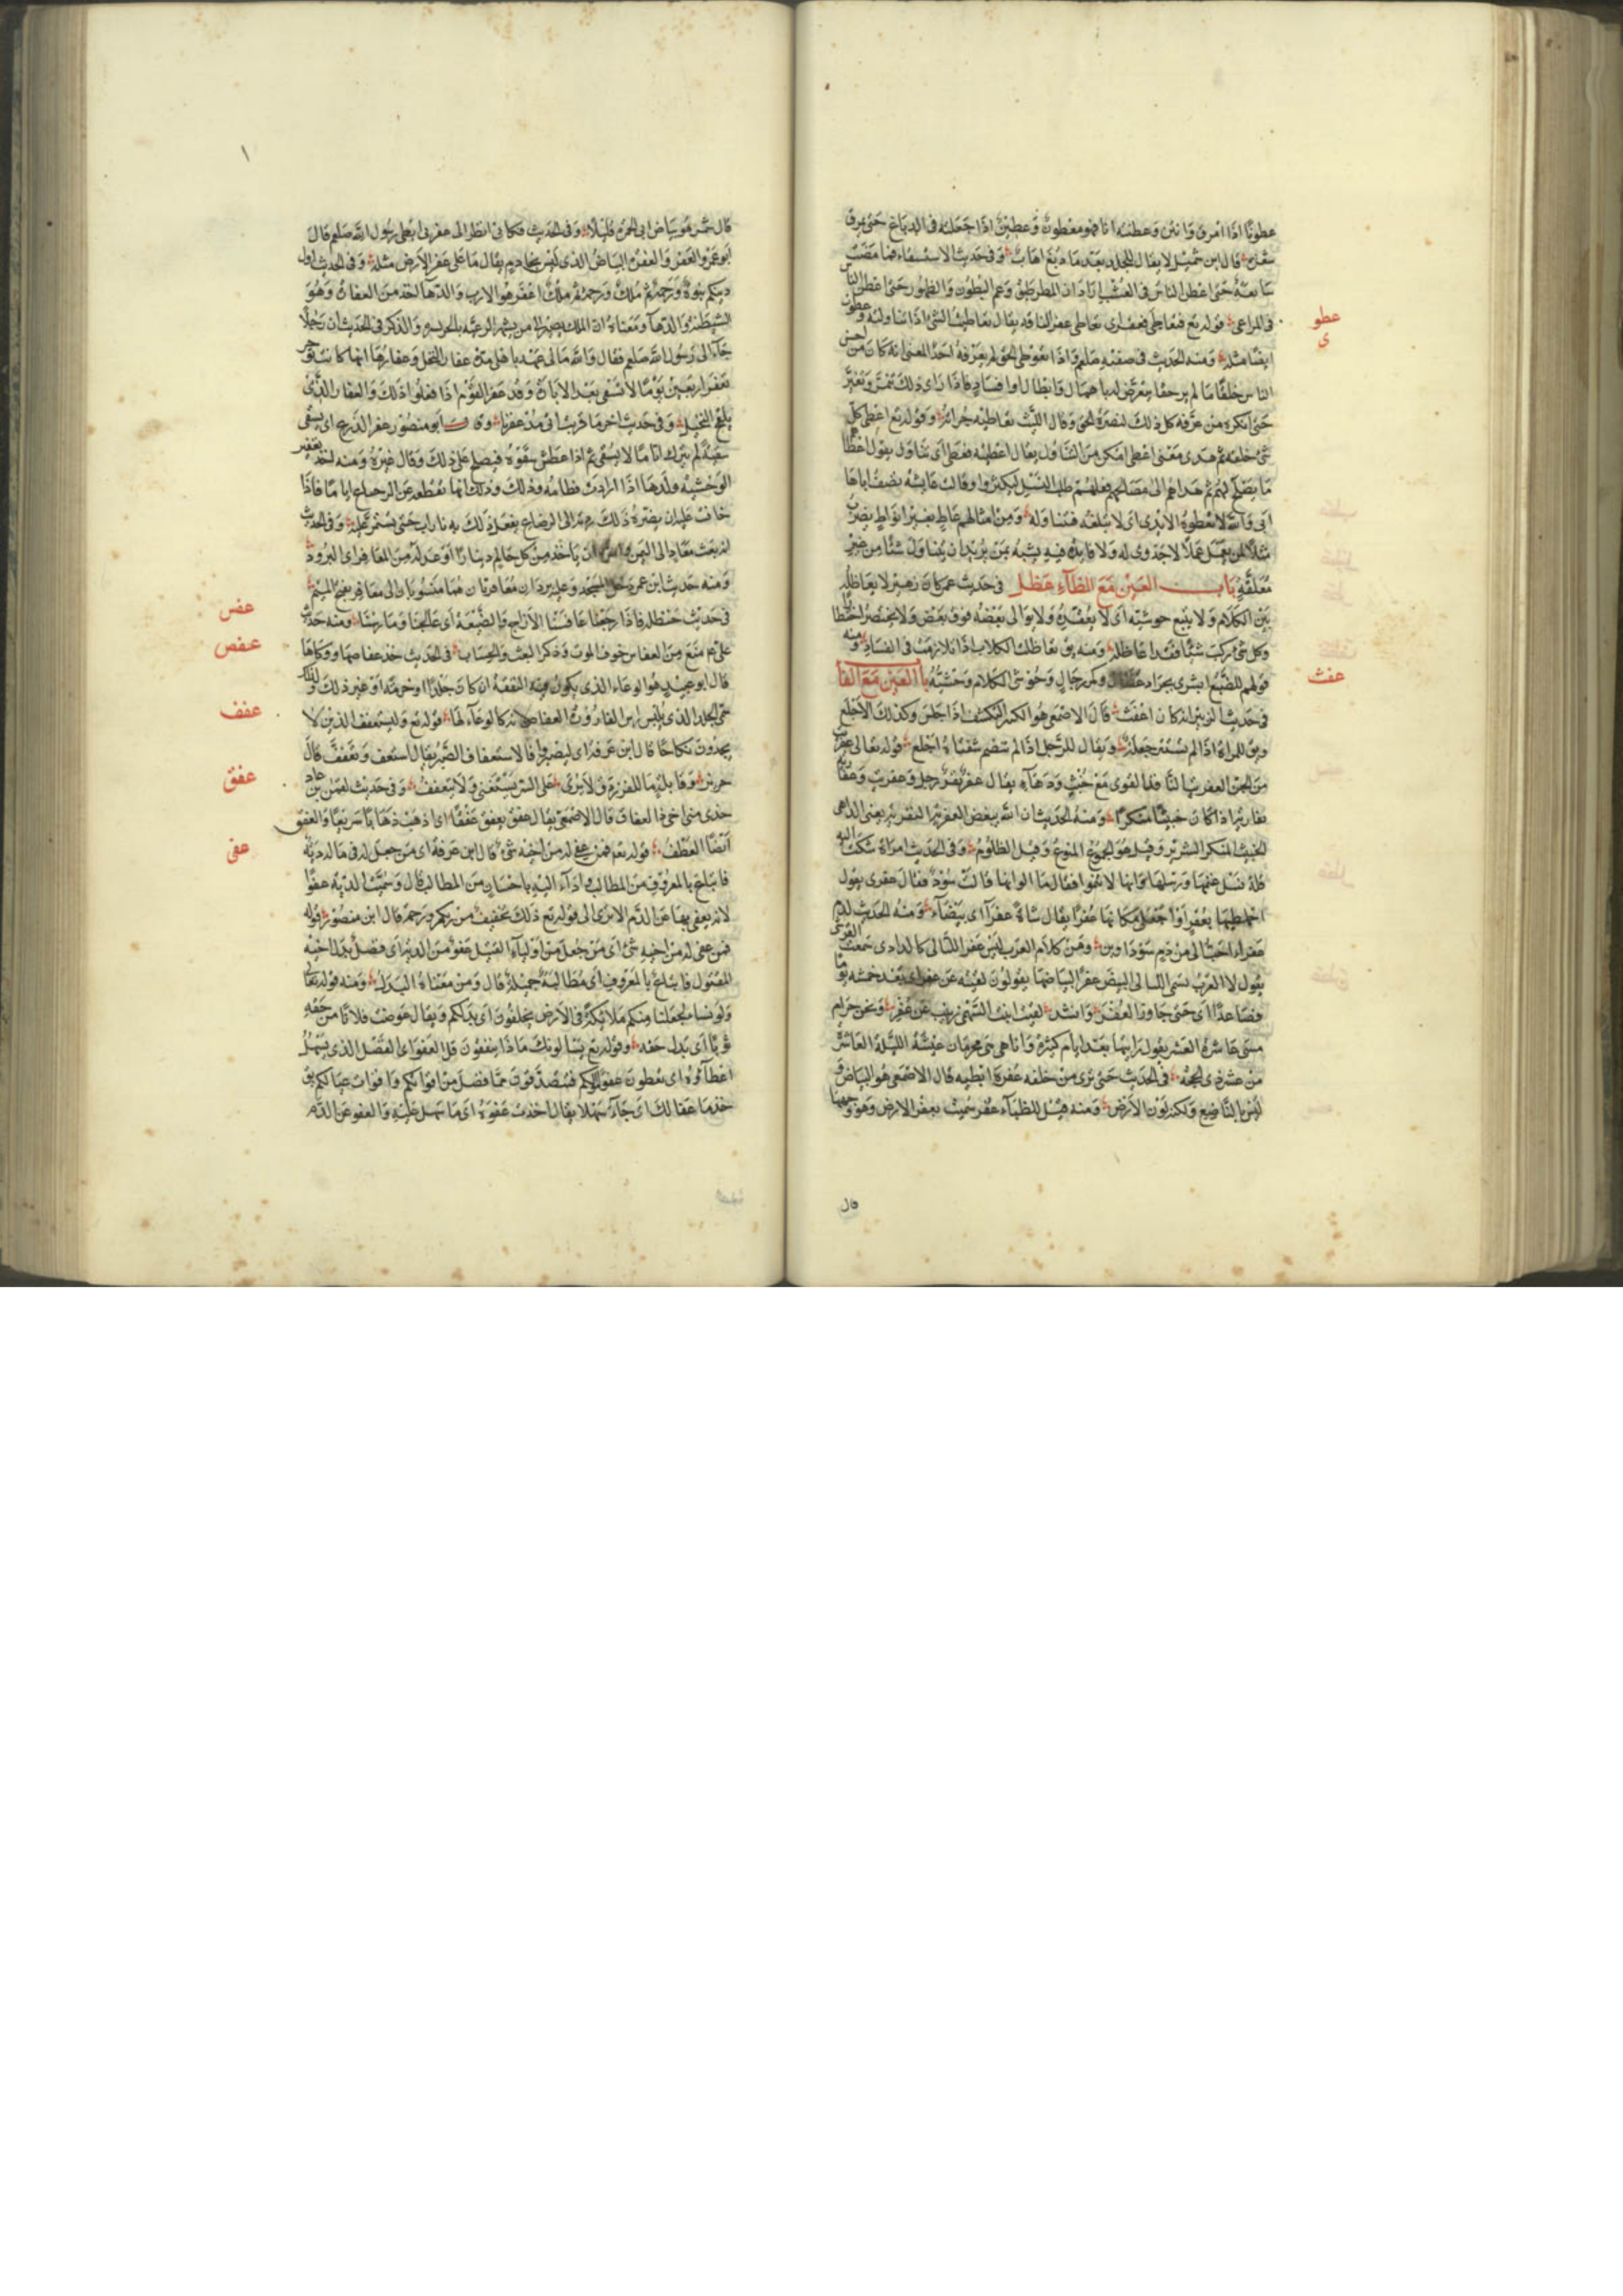 عطونًا اذا امرق وانتن وعطنته انا فهو معطون وعطين اذا جعلته فى الدباغ حتى يمرق
قال ابن شميل لا يقال للجلد بعد ما دبغ اهاب وفى حديث الاستسقاء فما مضت
سابعة حتى اعطن الناس فى العشب اراد ان المطر طبق وعم البطون والظهور حتى اعطن الناس
فى المراعى قوله تع فتعاطى فعقر اى تعاطى عقر الناقة يقال تعاطيت الشئ اذا تناولته وعطوته
عطو
ى
ايضًا مثله ومنه الحديث فى صفته صلعم فاذا تعوطى الحق لم يعرفه احد المعنى انه كان من احسن
الناس خلقًا ما لم ير حقا يتعرض له باهمال وابطال او افساد فاذا راى ذلك تنمر وتغير
حتى انكره من عرفه كل ذلك لنصرة الحق وقال الليث تعاطيه جراته وقوله تع اعطى كل
شئ خلقه ثم هدى معنى اعطى امكن من التناول يقال اعطيته فعطى اى تناول يقول اعطا
ما يصلح لهم ثم هداهم الى مصالحهم فعلمهم طلب النسل ليكثروا وقالت عايشه تصف اباها
ابى والله لا تعطوه الايدى اى لا تبلغه فتتناوله ومن امثالهم عاط بغير انواط يضرب
مثلًا لمن يعمل عملًا لا جدوى له ولا فايدة فيه يشبه بمن يريد ان يتناول شئًا من غير
معلقة باب العين مع الظاء عظل فى حديث عمر كان زهير لا يعاظل
بين الكلام ولا يتبع حوشيه اى لا يعقده ولا يوالى بعضه فوق بعض
وكل شئ ركب شيئًا فقد عاظله ومنه يق تعاظلت الكلاب اذا تلازمت فى السفاد ومنه
قولهم للضبع ابشرى بجراد عظال وكمر رجال وحوشى الكلام وحشيه باب العين مع الفا
عفث
فى حديث الزبير انه كان اعفث قال الاصمعى هو الكثير التكشف اذا جلس وكذلك الاجلع
ويق للمراة اذا لم تستتر جلعة ويقال للرجل اذا لم تنضم شفتاه اجلع قوله تعالى عفريت
من الجن العفريت النافذ القوى مع خبث ودهاء يقال عفر نفر رجل وعفريت وعفاريه
نفاريه اذا كان خبيثًا منكرًا ومنه الحديث ان الله يبغض العفرية النفرية يعنى الداهى
الخبيث المنكر الشرير وقيل هو الجموع المنوع وقيل الظلوم وفى الحديث امراة شكت اليه
قلة نسل غنمها ورسلها وانها لا تنموا فقال ما الوانها قالت سود فقال عفرى يقول
اخلطيها بعفر او اجعلى مكانها عفرًا يقال شاة عفرآ اى بيضآء ومنه الحديث لدم
عفراء احب الى من دم سوداوين ومن كلام العرب ليس عفر الليالى كالدادى
يقول لا العرب تسمى الليالى البيض عفر البياضها يقولون لقيته عن عفر اى بعد خمسه
فصاعدًا اى حتى جاوز العفر وانشد لقيت ابنت السهمى زينب عن عفر ونحن حرام
مسى عاشرة العشر يقول رايتها بعد ايام كثيرة وانا هى محرمان عشية الليلة العاشر
من عشر ذى الحجة فى الحديث حتى نرى من خلفه عفرة ابطيه قال الاصمعى هو البياض و
ليس بالناصع ولكنه لون الارض ومنه قيل للظباء عفر سميت بعفر الارض وهو وجهها
قال
قال شمر هو بياض الى الحمرة قليلًا وفى الحديث فكانى انظر الى عفرتى ابطى رسول الله صلعم قال
ابو عمرو العفر والعفرة البياض الذى ليس يقال ما على عفر الارض مثله وفى الحديث اول
دينكم نبوة ورحمة ثم ملك ورحمة ثم ملك اعفر هو الارب والدها اخذ من العفارة وهو
الشيطنه والدهآ ومعناه ان الملك يصير الى من يشهر الرعية والذكر فى الحديث ان رجلًا
جاء الى رسول الله صلعم فقال والله مالى عهد باهلى منذ عفار النخل وعفارها انها كانت
تعفر اربعين يومًا لا تسقى بعد الابار وقد عفر القوم اذا فعلوا ذلك والعفار الذى
يلقح النخيل وفى حديث اخر ما قربت مذ عفرنا وقال ابو منصور عفر الذرع اى يسقى
سقية ثم يترك اياما لا يسقى ثم اذا عطش سقوه فيصلح على ذلك وقال غيره ومنه اخذ تعفير
الوحشيه ولدها اذا ارادت فطامه وذلك انها تقطعه عن الرضاع اياما فاذا
خافت عليه ان يضره ذلك ردته الى الرضاع يفعل ذلك به تارات حتى يستمر عليه وفى الحديث
انه بعث معاذا الى اليمن وامره ان ياخذ من كل حالم دينارًا او عدله من المعافر اى البرود
ومنه حديث ابن عمر دخل المسجد وعليه بردان معافريان هما منسوبان الى معافر بفتح الميم
عفس
فى حديث حنظله فاذا رجعنا عافسنا الازواج والضيعة اى عالجنا ومارسنا ومنه حديث
عفص
على عم منع من العفاس خوف الموت وذكر البعث والحساب فى الحديث خذ عفاصها ووكاها
قال ابو عبيد هو الوعاء الذى يكون فيه النفقة ان كان جلدًا او خرقة او غير ذلك ولذلك
سمى الجلد الذى يلبس راس القارورة العفاص لانه كالوعاء لها قوله تع وليستعفف الذين لا
عفف
يجدون نكاحًا قال ابن عرفة اى ليصبروا فالاستعفاف الصبر يقال استعف وتعفف قال
جرير وقايلة ما للفرزدق لا يرى على السن يستغنى ولا يتعفف وفى حديث لقمن بن عاد
عفق
خذى منى اخى ذا العفاق قال الاصمعى يقال عفق يعفق عفقًا اى ذهب ذهابًا سريعًا والعفق
ايضًا العطف قوله تع فمن عفى له من اخيه شئ قال ابن عرفة اى من جعل له فى مال دية
عفى
فاتباع بالمعروف من المطالب واداء اليه باحسان من المطالب قال وسميت الدية عفوًا
لانه يعفى بها عن الدم الا ترى الى قوله تع ذلك تخفيف من ربكم ورحمة قال ابن منصور قوله
فمن عفى له من اخيه شئ اى من جعل من اولياء القتيل عفو من الدية اى فضل بدل اخيه
المقتول فاتباع بالمعروف اى مطالبة جميلة قال ومن معناه البدل ومنه قوله تعا
ولو نشاء لجعلنا منكم ملائكة فى الارض يخلفون اى بدلكم ويقال عوضت فلانًا من حقه
ثوبًا اى بدل حقه وقوله تع يسالونك ماذا ينفقون قل العفو اى الفضل الذى يسهل
اعطاؤه اى يعطون عفو اموالكم فتصدقون مما فضل من اقواتكم واقوات عيالكم يق
خذ ما عفا لك اى جآء سهلا يقال اخذت عفوه اى ما سهل عليه والعفو عن الدم